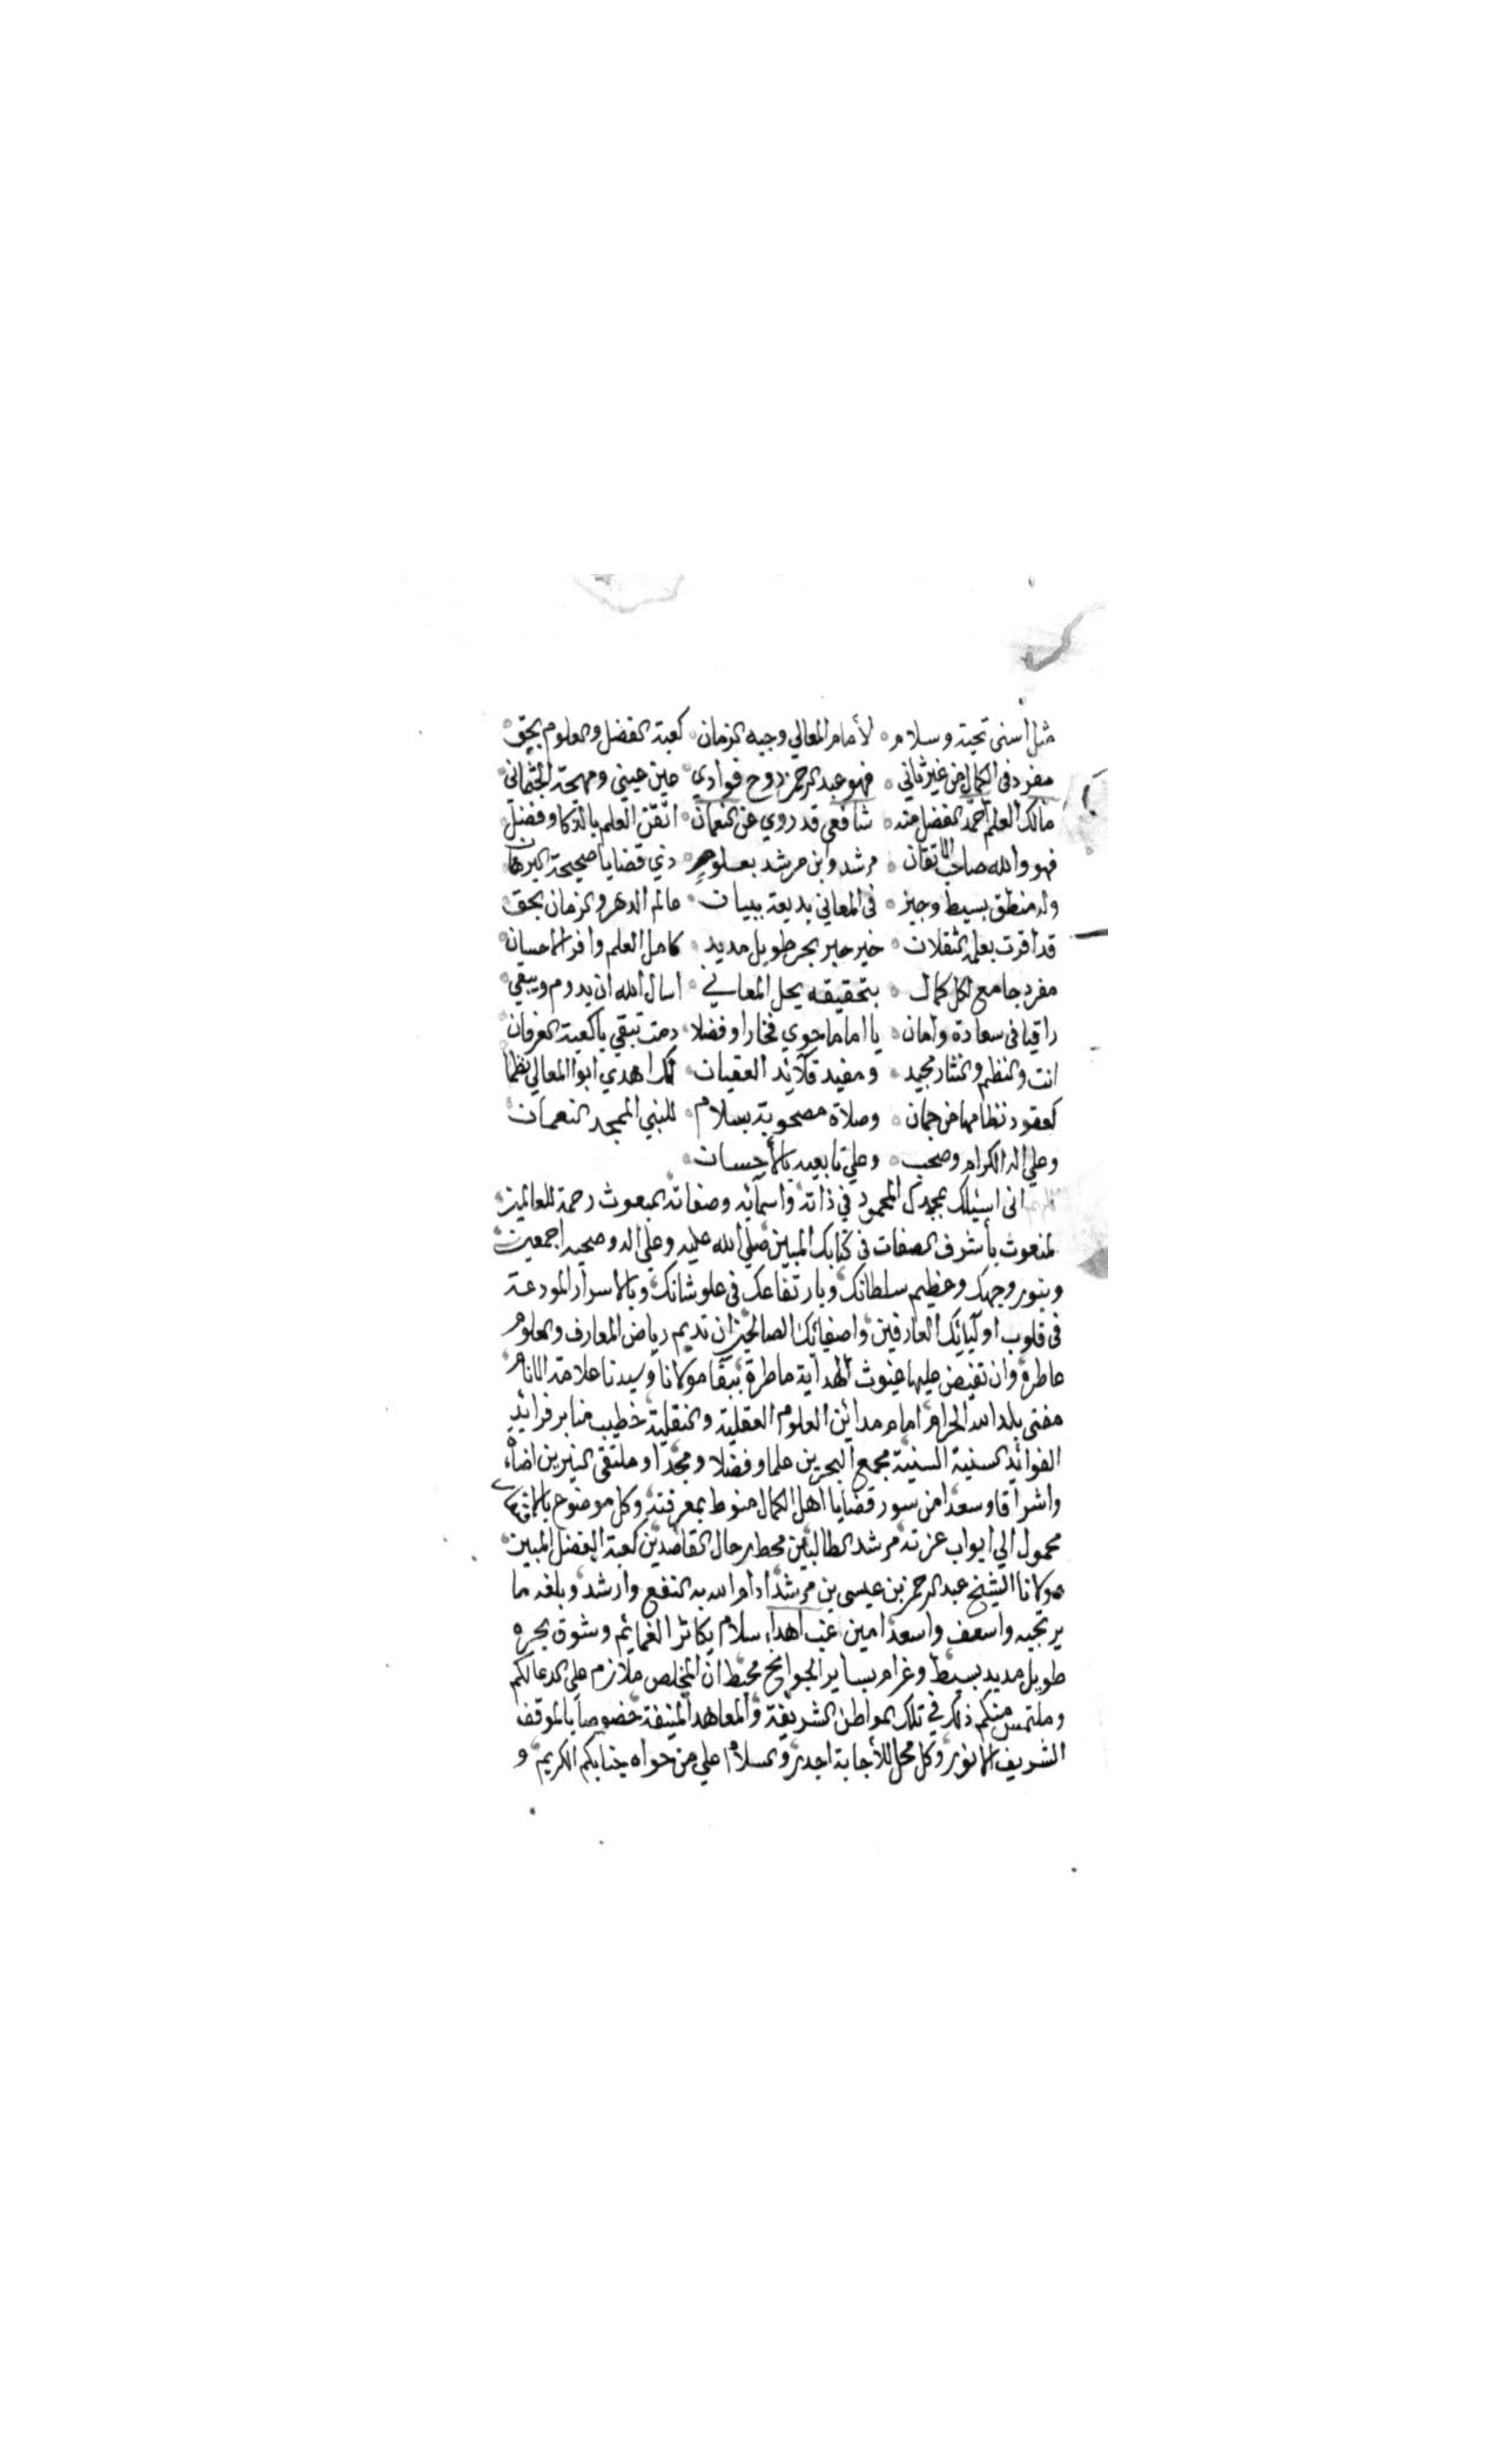 مثل اسنى تحية وسلام لأمام المعالي وجيه الزمان كعبة الفضل والعلوم بحق
مفرد فى الكمال من غير ثاني فهو عبد الرحمن روح فوادي عين عيني ومهجة الجثماني
مالك العلم احمد الفضل منه شافعي قد روي عن النعمان اتقن العلم بالذكا وفضل
فهو والله صاحب الاتقان مرشد وابن مرشد بعلوم ذي قضايا صحيحة البرهان
وله منطق بسيط وجيز فى المعاني بديعة ببيان عالم الدهر والزمان بحق
قد اقرت بعلمه الثقلان خير حبر بحر طويل مديد كامل العلم وافر الاحسان
مفرد جامع لكل كمال بتحقيقه يحل المعاني اسال الله ان يدوم ويبقي
راقيا فى سعادة وامان يا اماما حوي فخارا وفضلا دمت تبقي يا كعبة العرفان
انت والنظم والنثار مجيد ومفيد قلآئد العقيان لك اهدي ابوا المعالي نظما
كعقود نظامها من جمان وصلاة مصحوبة بسلام للنبي الممجد النعمان
وعلي اله الكرام وصحب وعلي تابعيه بالأحسان
اني اسئلك بمجدك المحمود في ذاته واسمآئه وصفاته المبعوث رحمة للعالمين
المنعوث بأشرف الصفات في كتابك المبين صلي الله عليه وعلي اله وصحبه اجمعين
وبنور وجهك وعظيم سلطانك وبارتفاعك فى علو شانك وبالاسرار المودعة
فى قلوب اوليآئك العارفين واصفيائك الصالحين ان تديم رياض المعارف والعلوم
عاطرة وان تفيض عليها غيوث الهداية ماطرة ببقا مولانا وسيدنا علامة الانام
مفتي بلد الله الحرام امام مدائن العلوم العقلية والنقلية خطيب منابر فرائد
الفوائد السنية السنية مجمع البحرين علما وفضلا ومجدا وملتقى النيرين اضاة
واشراقا وسعدا من سور قضايا اهل الكمال منوط بمعرفته وكل موضوع
محمول الي ابواب عزته مرشد الطالبين محط رحال القاصدين كعبة الفضل المبين
مولانا الشيخ عبد الرحمن بن عيسى بن مرشد ادام الله به النفع وارشد وبلغه ما
يرتجيه واسعف واسعد امين غب اهدا سلام يكاثر الغمائم وشوق بحره
طويل مديد بسيط وغرام بساير الجوانح محيط ان المخلص ملازم علي الدعا لكم
وملتمس منكم ذلك في تلك المواطن الشريفة والمعاهد المنيفة خصوصا بالموقف
الشريف الانور وكل محل للأجابة اجدر والسلام علي من حواه جنابكم الكريم و